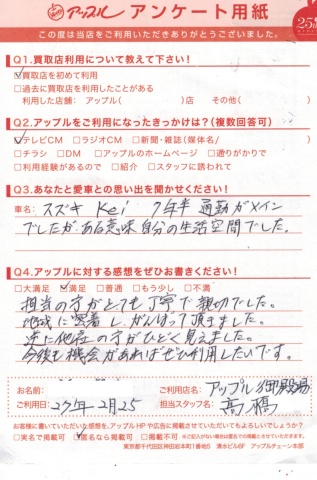 アップル アンケート用紙
25th
この度は当店をご利用いただきありがとうございました。
Q1.買取店利用について教えて下さい!
☑買取店を初めて利用
□過去に買取店を利用したことがある
利用した店舗: アップル( )店 その他( )
Q2.アップルをご利用になったきっかけは?(複数回答可)
☑テレビCM □ラジオCM □新聞・雑誌(媒体名/ )
□チラシ □DM □アップルのホームページ □通りがかりで
□利用経験があるので □紹介 □スタッフに誘われて
Q3.あなたと愛車との思い出を聞かせください!
車名: スズキ Kei 7年半 通勤がメイン
でしたが、ある意味自分の生活空間でした。
Q4.アップルに対する感想をぜひお書きください!
□大満足 ☑満足 □普通 □もう少し □不満
担当の方がとても丁寧で親切でした。
地域に密着し、がんばって頂きました。
逆に他店の方がひどく見えました。
今後も機会があればぜひ利用したいです。
お名前: ご利用店名: アップル御殿場
ご利用日: 27年2月25 担当スタッフ名: 高橋
お客様に書いていただいた感想を、アップルHPや広告に掲載させていただいてもよろしいでしょうか?
□実名で掲載可 ☑匿名なら掲載可 □掲載不可 ※ご記入がない場合は匿名での掲載とさせていただきます。
東京都千代田区神田岩本町1番地5 清水ビル6F アップルチェーン本部